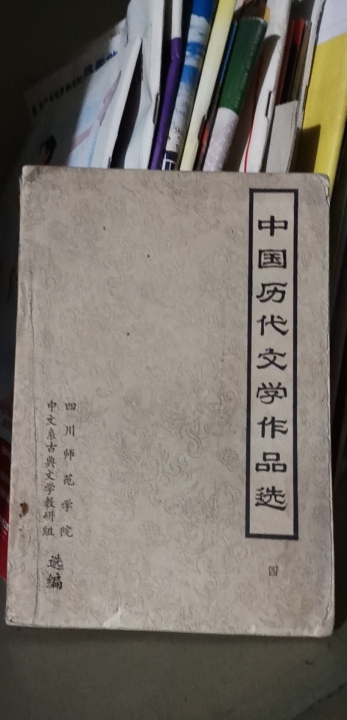 中国历代文学作品选
四
四川师范学院
中文系古典文学教研组
选编